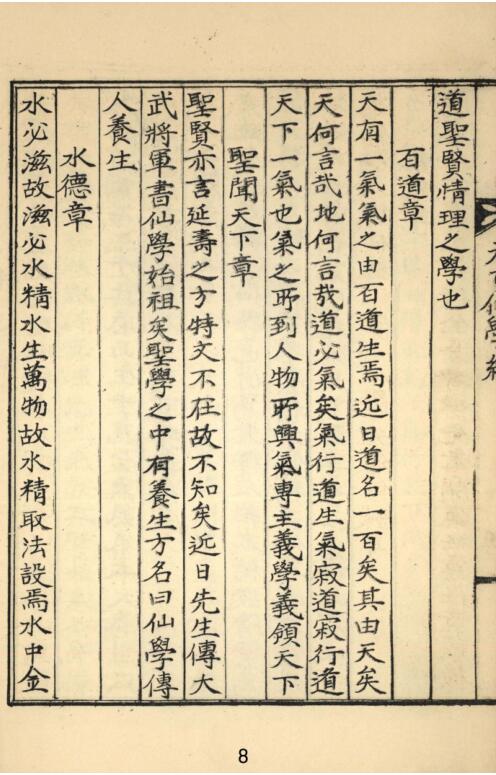 道聖賢情理之學也
石道章
天有一氣氣之由石道生焉近日道名一百矣其由天矣
天何言哉地何言哉道必氣矣氣行道生氣寂道寂行道
天下一氣也氣之所到人物所興氣專主義學義領天下
聖聞天下章
聖賢亦言延壽之方特文不在故不知矣近日先生傳大
武將軍書仙學始祖矣聖學之中有養生方名曰仙學傳
人養生
水德章
水必滋故滋必水精水生萬物故水精取法設焉水中金
8